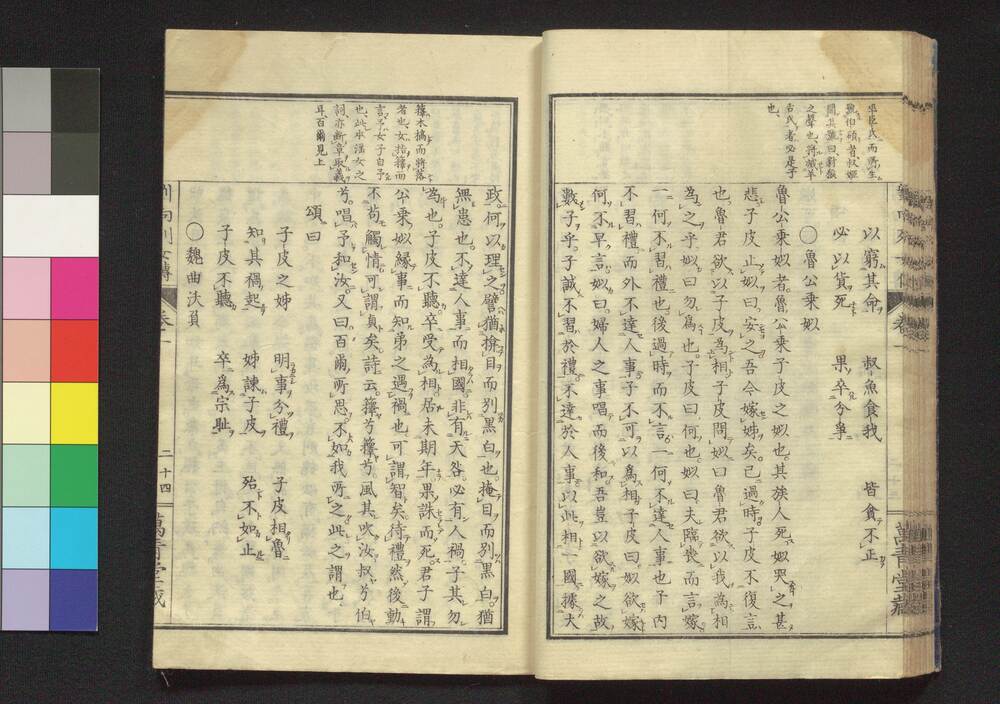 平臣氏而所生
之聲也將滅羊
舌氏者必是子
也
以窮其命 叔魚食我 皆貪不正
必以貨死 果卒分爭
○魯公乘姒
魯公乘姒者魯公乘子皮之姒也其族人死姒哭之甚
悲子皮止姒曰安之吾今嫁姊矣已過時子皮不復言
也魯君欲以子皮為相子皮問姒曰魯君欲以我為相
為之乎姒曰勿為也子皮曰何也姒曰夫臨喪而言嫁
一何不習禮也後過時而不言一何不達人事也子內
不習禮而外不達人事子不可以為相子皮曰姒欲嫁
何不早言姒曰婦人之事唱而後和吾豈以欲嫁之故
數子乎子誠不習於禮不達於人事以此相一國據大
蘀木槁而將落
者也女指蘀而
言予女子自予
也此本淫女之
詞亦斷章取義
耳百爾見上
政何以理之譬猶揜目而別黑白也掩目而別黑白猶
無患也不達人事而相國非有天咎必有人禍子其勿
為也子皮不聽卒受為相居未期年果誅而死君子謂
公乘姒緣事而知弟之遇禍也可謂智矣待禮然後動
不苟觸情可謂貞矣詩云蘀兮蘀兮風其吹汝叔兮伯
兮唱予和汝又曰百爾所思不如我所之此之謂也
頌曰
子皮之姊 明事分禮 子皮相魯
知其禍起 姊諫子皮 殆不如止
子皮不聽 卒為宗恥
○魏曲沃負
列女傳 卷一 二十四 萬青堂藏